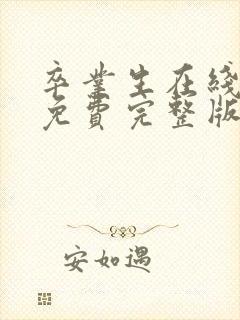 卒業生在綫
免費完整版
安如遇